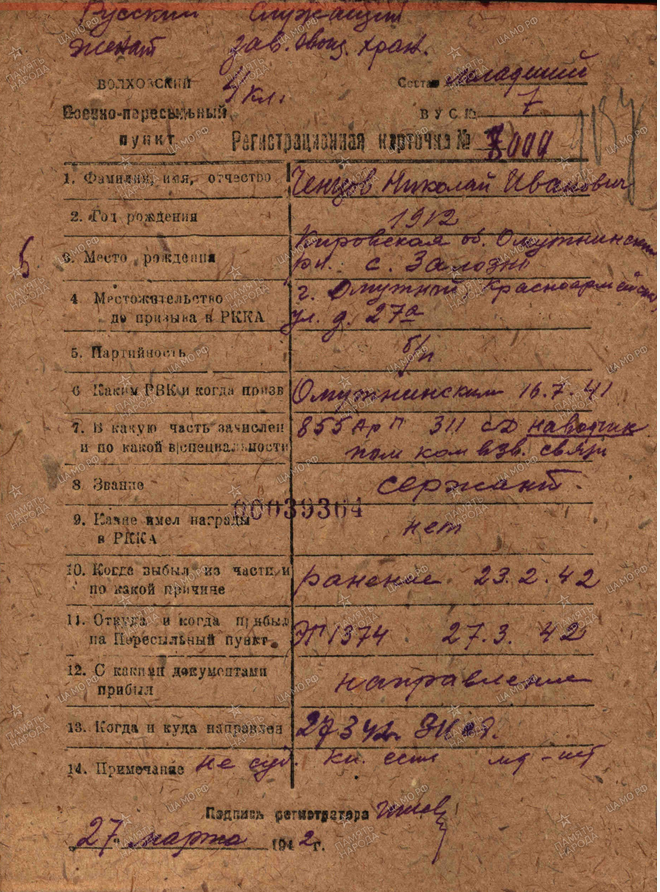 Русский Служащий
Женат зав. овощ. хран.
ВОЛХОВСКИЙ 4 кл. Состав младший
Военно-пересыльный ВУС № 7
пункт Регистрационная карточка № 7000
1. Фамилия, имя, отчество Ченцов Николай Иванович
2. Год рождения 1912
Кировская об. Омутнинский
3. Место рождения рн. с. Залозно
4. Местожительство г. Омутный, Красноармейская
до призыва в РККА ул. д. 27а
5. Партийность б/п
6 Каким РВК и когда призв Омутнинским 16.7.41
7. В какую часть зачислен 855 Ар П 311 сд наводчик
и по какой в/специальности пом ком взв. связи
8. Звание сержант.
00039364
9. Какие имел награды нет
в РККА
10. Когда выбыл из части и ранение 23.2.42
по какой причине
11. Откуда и когда прибыл ЭГ 1374 27.3.42
на Пересыльный пункт
12. С какими документами направление
прибыл
13. Когда и куда направлен 27 3 42г.
14. Примечание не суд. кн. есть
Подпись регистратора
„27 марта 1942г.